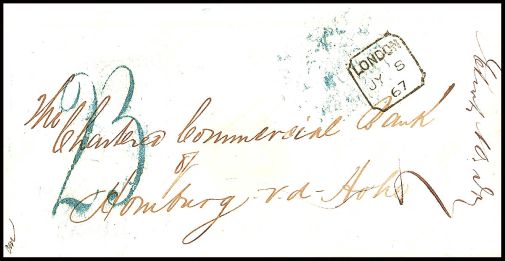 LONDON
JY 5
67
23
The
Chartered Commercial Bank
of
Homburg v-d-Höhe